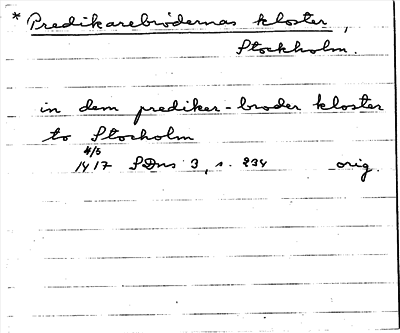 * Predikarebrödernas kloster,
Stockholm.
in dem prediker-broder kloster
to Stocholm
4/5
1417 SDns 3, s. 234 orig.